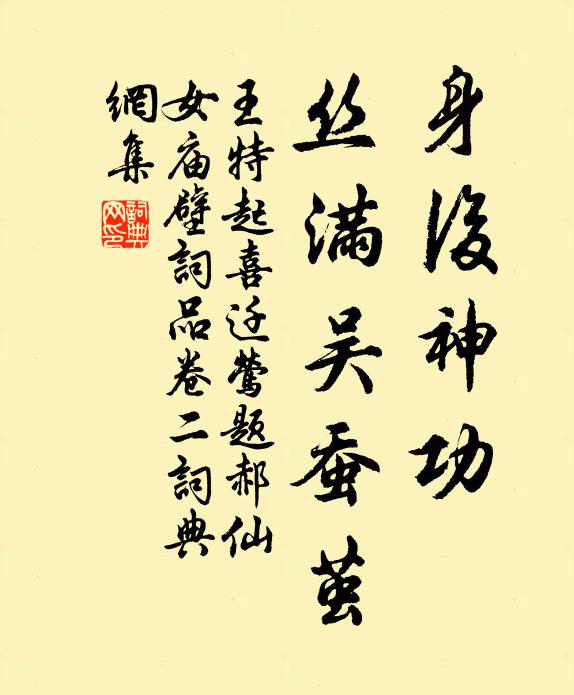 身後神功
丝满吴蚕茧
王特起喜迁莺题郝仙
女庙壁詞品卷二詞典
網集
詞典
网印